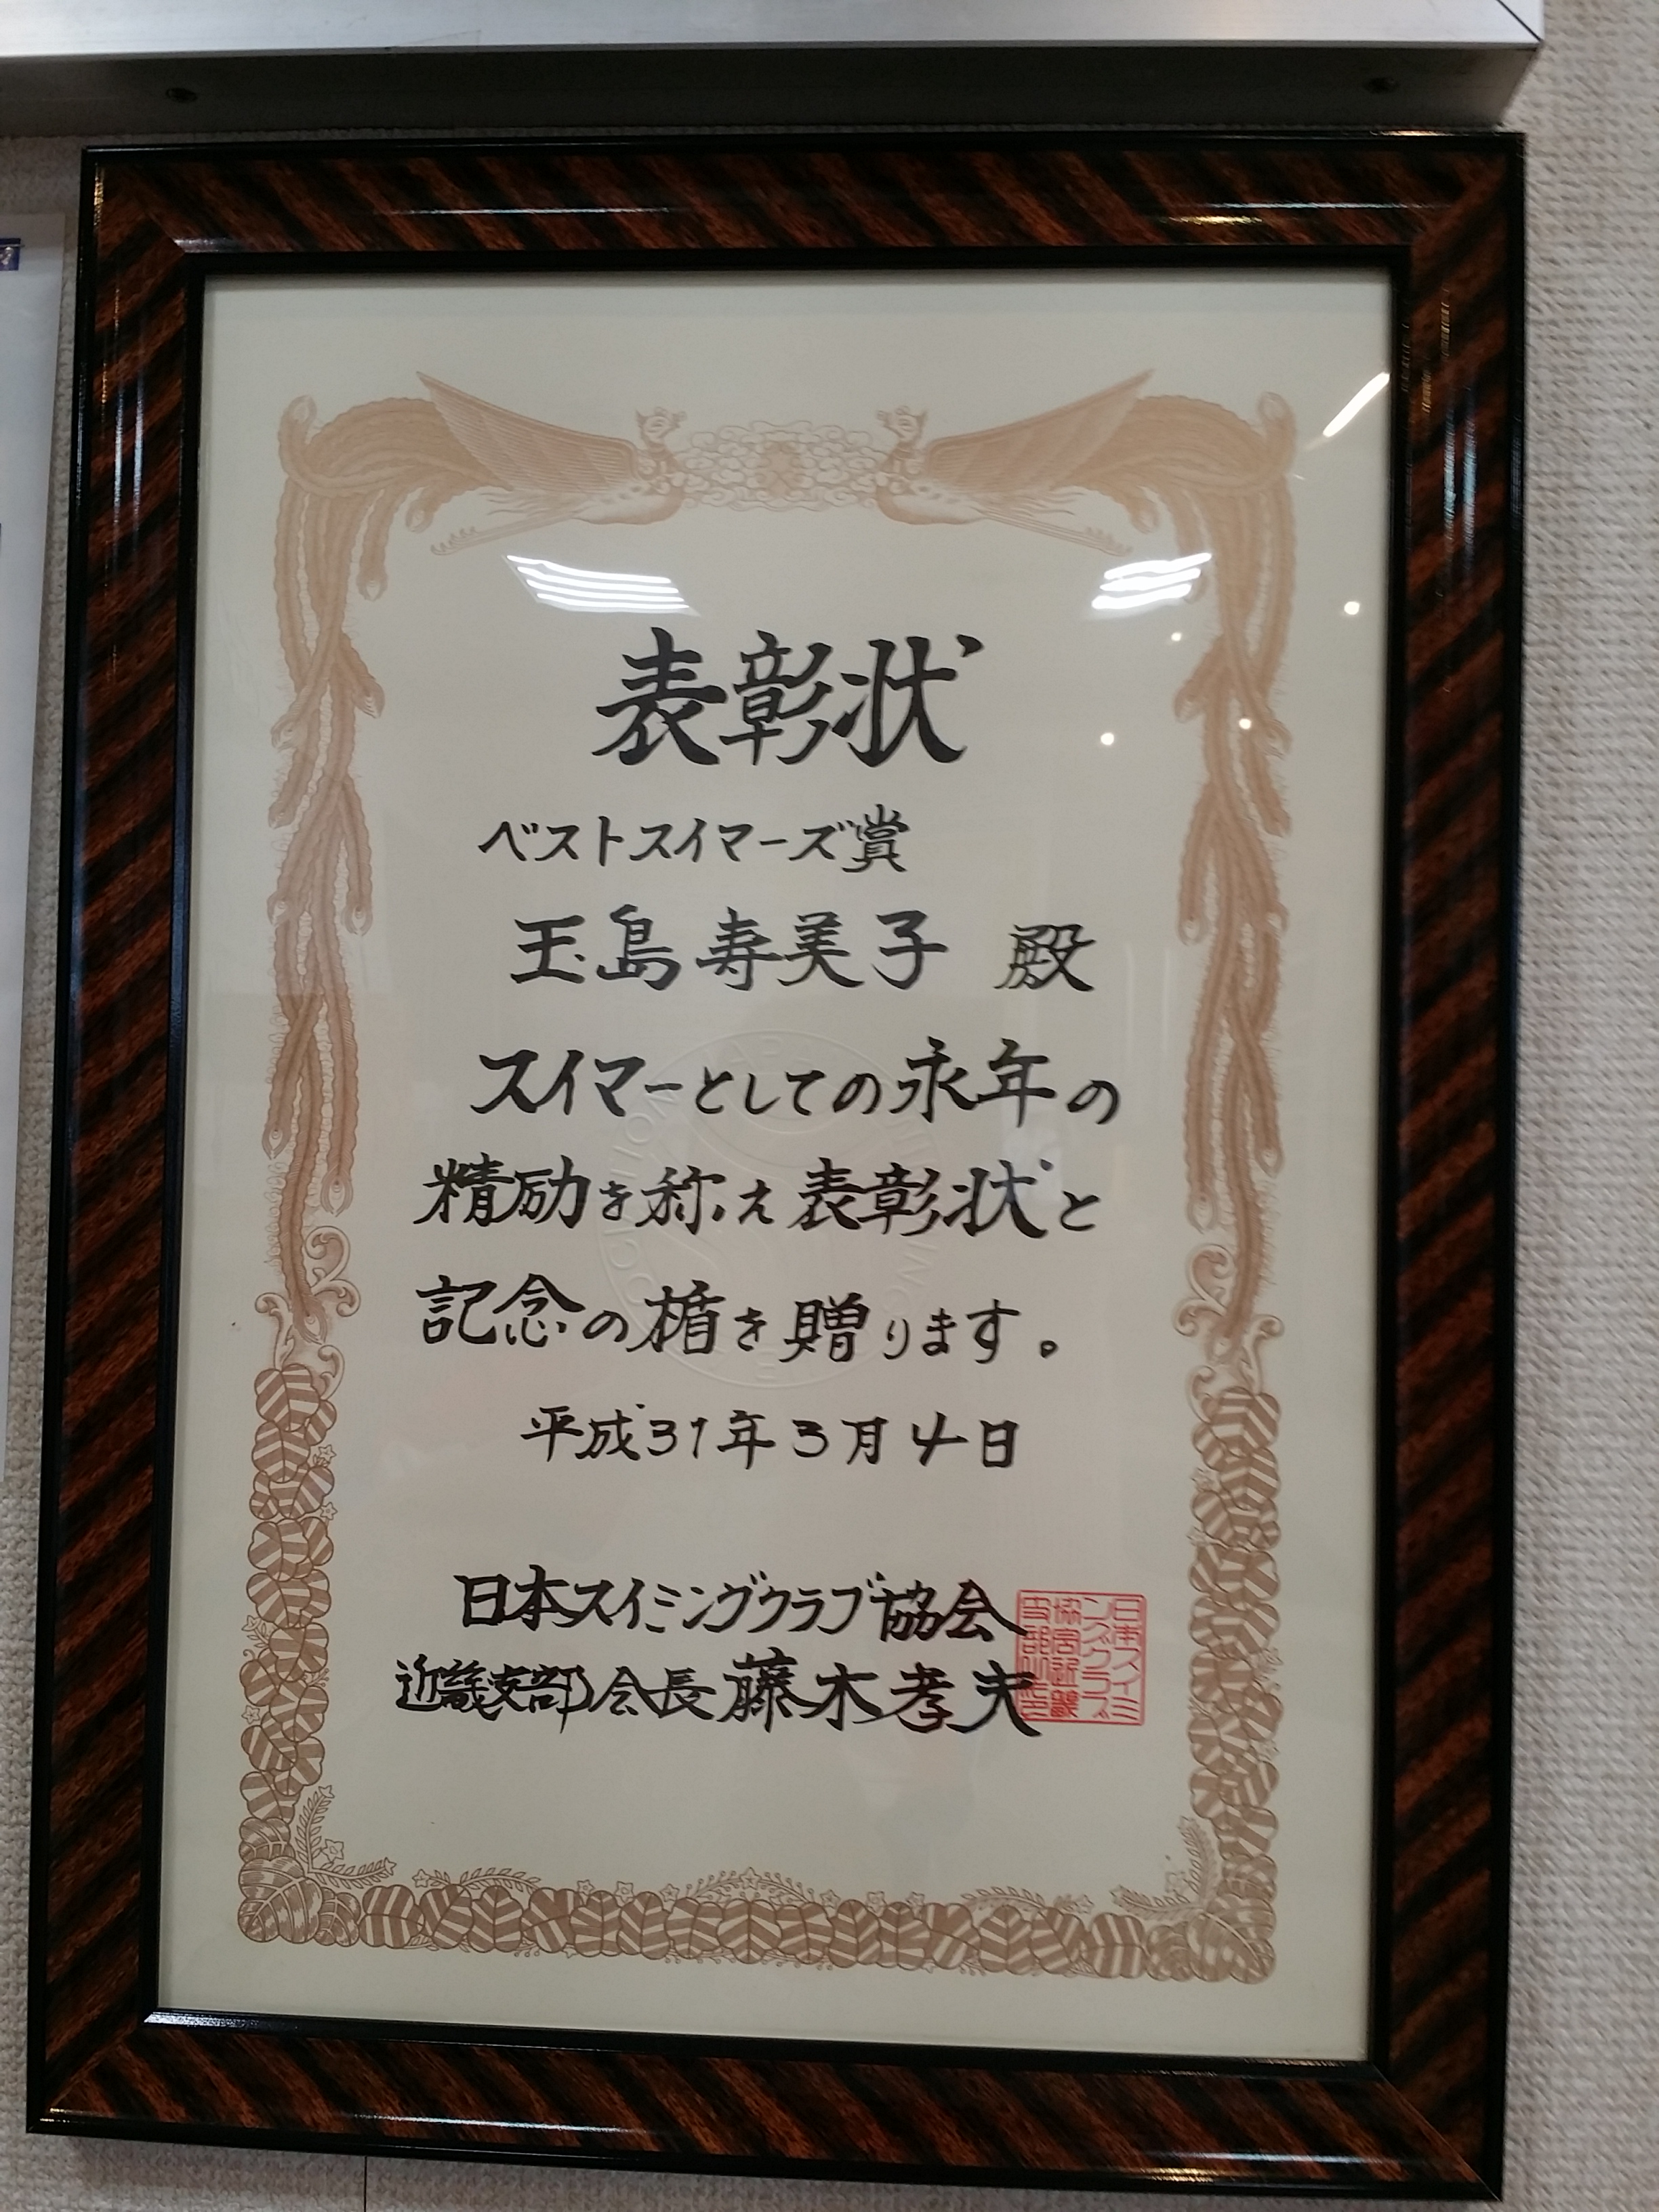 表彰状
ベストスイマーズ賞
玉島寿美子 殿
スイマーとしての永年の
精励を称え表彰状と
記念の楯を贈ります。
平成31年3月4日
日本スイミングクラブ協会
近畿支部会長藤木孝夫
日本スイミ
ングクラブ
協会近畿
支部